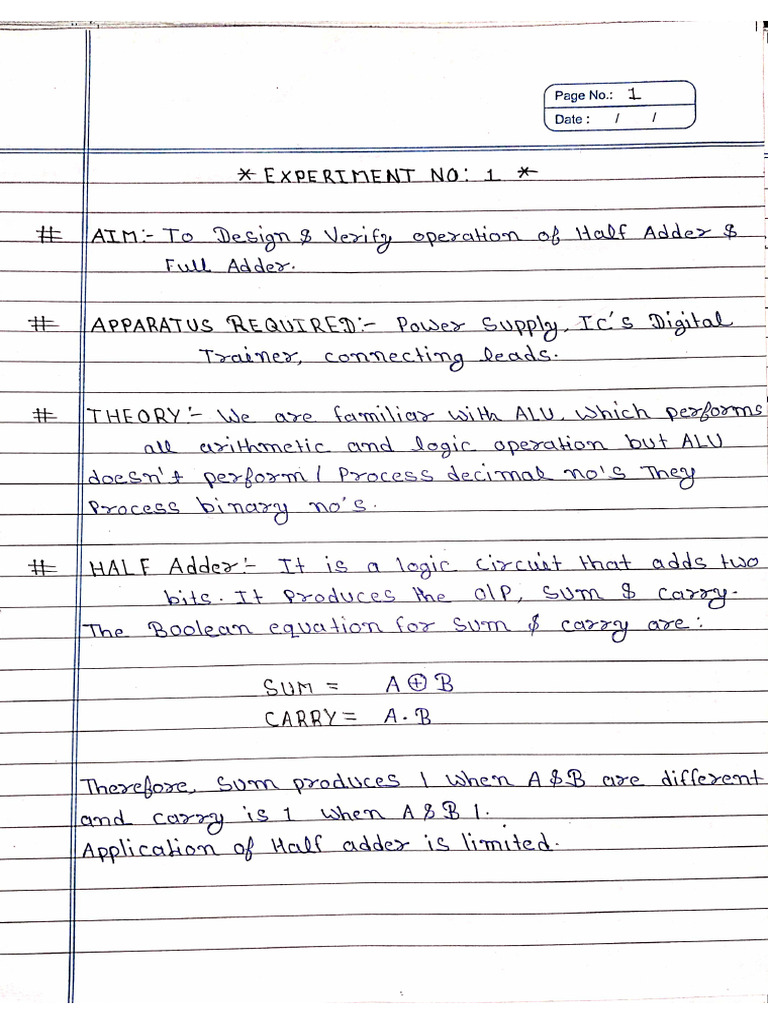 Page No.: 1
Date : / /
* EXPERIMENT NO: 1 *
# AIM:- To Design & Verify operation of Half Adder &
Full Adder.
# APPARATUS REQUIRED:- Power Supply, IC's Digital
Trainer, connecting leads.
# THEORY:- We are familiar with ALU, which performs
all arithmetic and logic operation but ALU
doesn't perform / Process decimal no's They
Process binary no's.
# HALF Adder:- It is a logic circuit that adds two
bits. It Produces the O/P, sum & carry.
The Boolean equation for sum & carry are:
SUM = A ⊕ B
CARRY = A . B
Therefore, sum produces 1 when A & B are different
and carry is 1 when A & B 1.
Application of Half adder is limited.